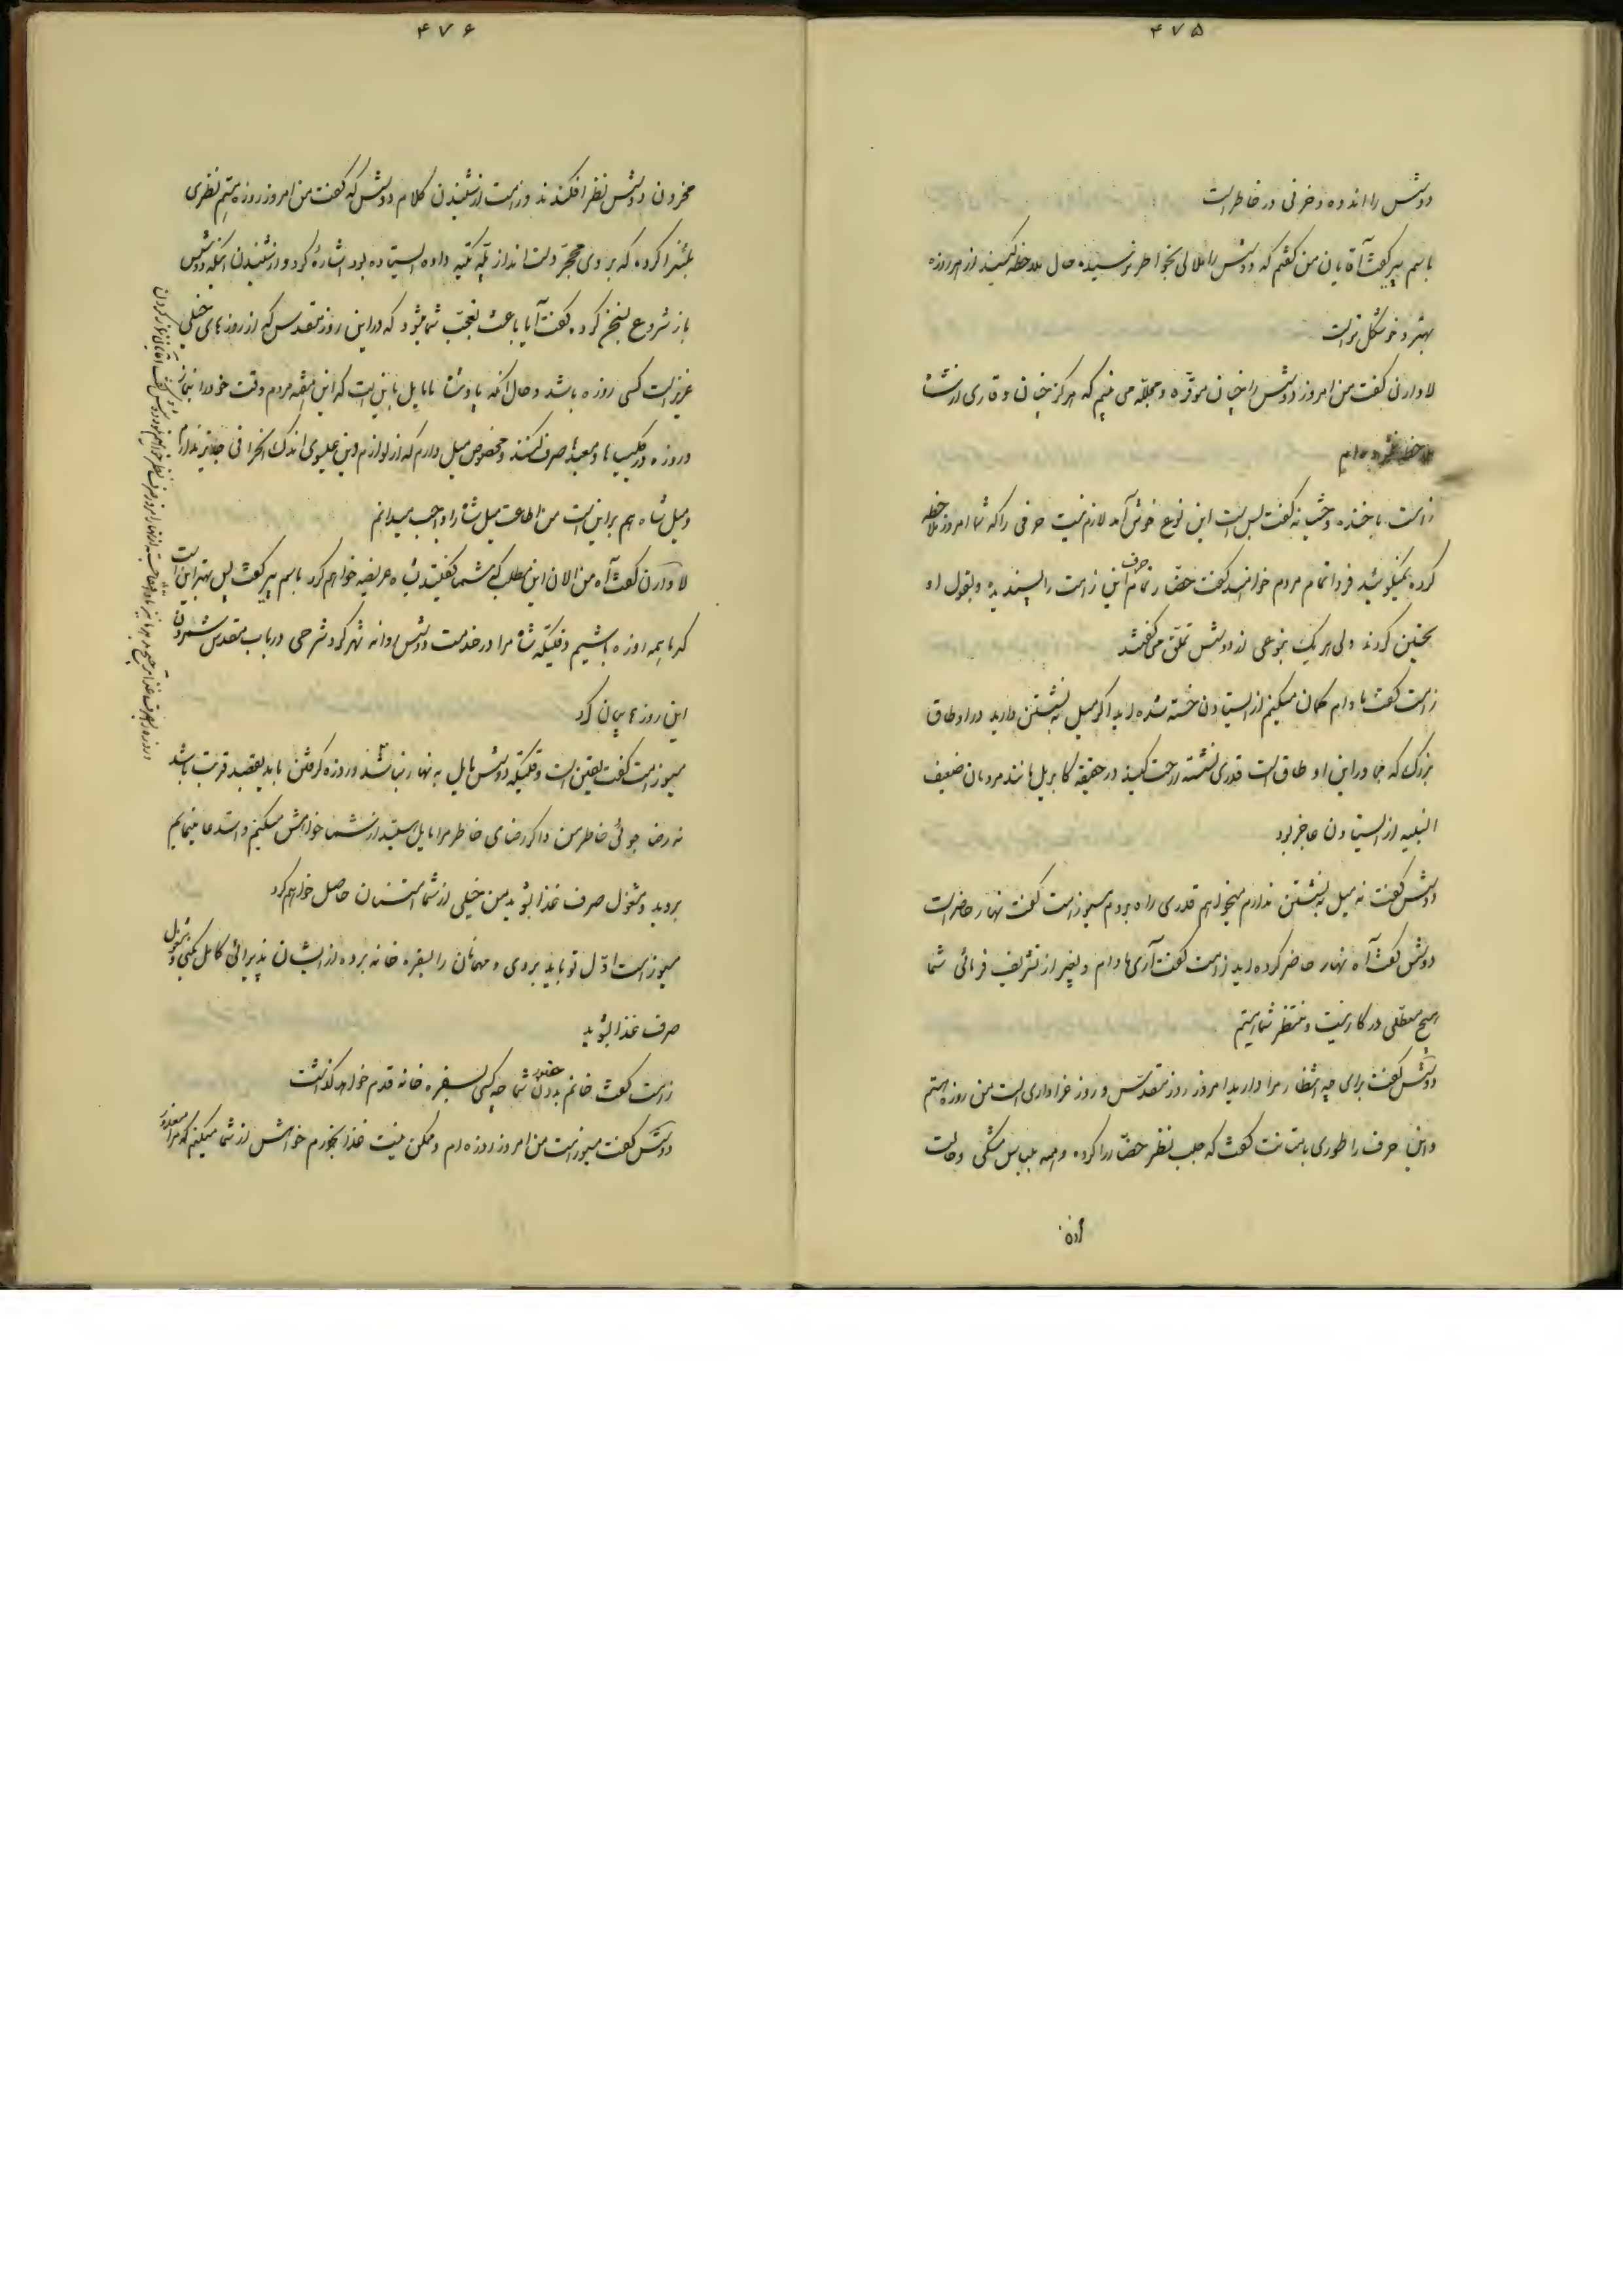 ۴۷۵
دوشس را اندوه و حزنی در خاطر است
باسم پیر گفت آقایان من گفتم که دوشس را ملالی بخاطر نرسیده حال ملاحظه کنید از هر روزه
بهتر و خوشگل تر است
لاوارن گفت من امروز دوشس را چنان موقره و مجلله می بینم که هرگز چنان وقاری از ایشان
ملاحظه نکرده ام
زامت با خنده وحشیانه گفت بس است این نوع خوش آمد لازم نیست حرفی را که شما امروز ملاحظه
کرده میگوئید فردا تمام مردم خواهند گفت حضار تمام این حرف زامت را پسندیده و بقول او
تحسین کردند ولی هر یک بنوعی از دوشس تملق می گفتند
زامت گفت مادام گمان میکنم از ایستادن خسته شده اید اگر میل به نشستن دارید در اوطاق
بزرگ که جنب این اوطاق است قدری نشسته راحت کنید در حقیقه کابریل مانند مردمان ضعیف
البنیه از ایستادن عاجز بود
دوشس گفت نه میل به نشستن ندارم میخواهم قدری راه بروم میوزامت گفت نهار حاضر است
دوشس گفت آه نهار حاضر کرده اید زامت گفت آری مادام و بغیر از تشریف فرمائی شما
هیچ معطلی در کار نیست و منتظر شما هستیم
دوشس گفت برای چه انتظار مرا دارید امروز روز مقدس و روز عزاداری است من روزه هستم
و این حرف را طوری با متانت گفت که جلب نظر حضار را کرده و همه بلباس مشکی و حالت
محزون
۴۷۶
محزون دوشس نظر افکندند و زامت از شنیدن کلام دوشس که گفت من امروز روزه هستم نظری
کرده که بروی محجر دست انداز پله تکیه داده ایستاده بود اشاره کرد و از شنیدن اینکه دوشس
باز شروع بسخن کرده گفت آیا باعث تعجب شما میشود که در این روز مقدس که از روز های خیلی
عزیز است کسی روزه باشد و حال آنکه پادشاه ما مایل باین است که این هفته مردم وقت خود را بنماز
و روزه در کلیسا ها و معبدها صرف کنند و مخصوص میل دارم که از لوازم دین عیسوی اندک انحرافی جایز ندارم
و میل شاه هم بر این است من اطاعت میل شاه را واجب میدانم
لاوارن گفت آه من الان این مطلب که شما گفتید بشاه عریضه خواهم کرد باسم پیر گفت پس بهتر این است
که ما همه روزه باشیم وقتیکه شاه مرا در خدمت دوشس روانه شهر کرد شرحی در باب مقدس شمردن
این روز ها بیان کرد
میوزامت گفت یقین است وقتیکه دوشس مایل به نهار نباشند و روزه گرفتن باید بقصد قربت باشد
نه رضا جوئی خاطر من و اگر رضای خاطر مرا مایل هستید از شما خواهش میکنم و استدعا مینمایم
بروید و مشغول صرف غذا بشوید من خیلی از شما امتنان حاصل خواهم کرد
میوزامت اول تو باید بروی و مهمانان را بسفره خانه برده از ایشان پذیرائی کامل بکنی و مشغول
صرف غذا بشوید
زامت گفت خانم بدون حضور شما چه کسی بسفره خانه قدم خواهد گذاشت
دوشس گفت میوزامت من امروز روزه ام و ممکن نیست غذا بخورم خواهش از شما میکنم که مرا معذور